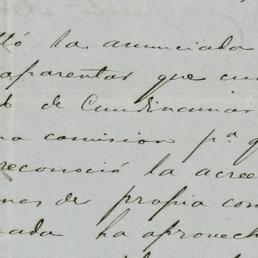 lló la anunciada
aparentar que
de Cundinamar
comision p.ª q
reconoció la acre
nes de propia com
nada ha aprovech